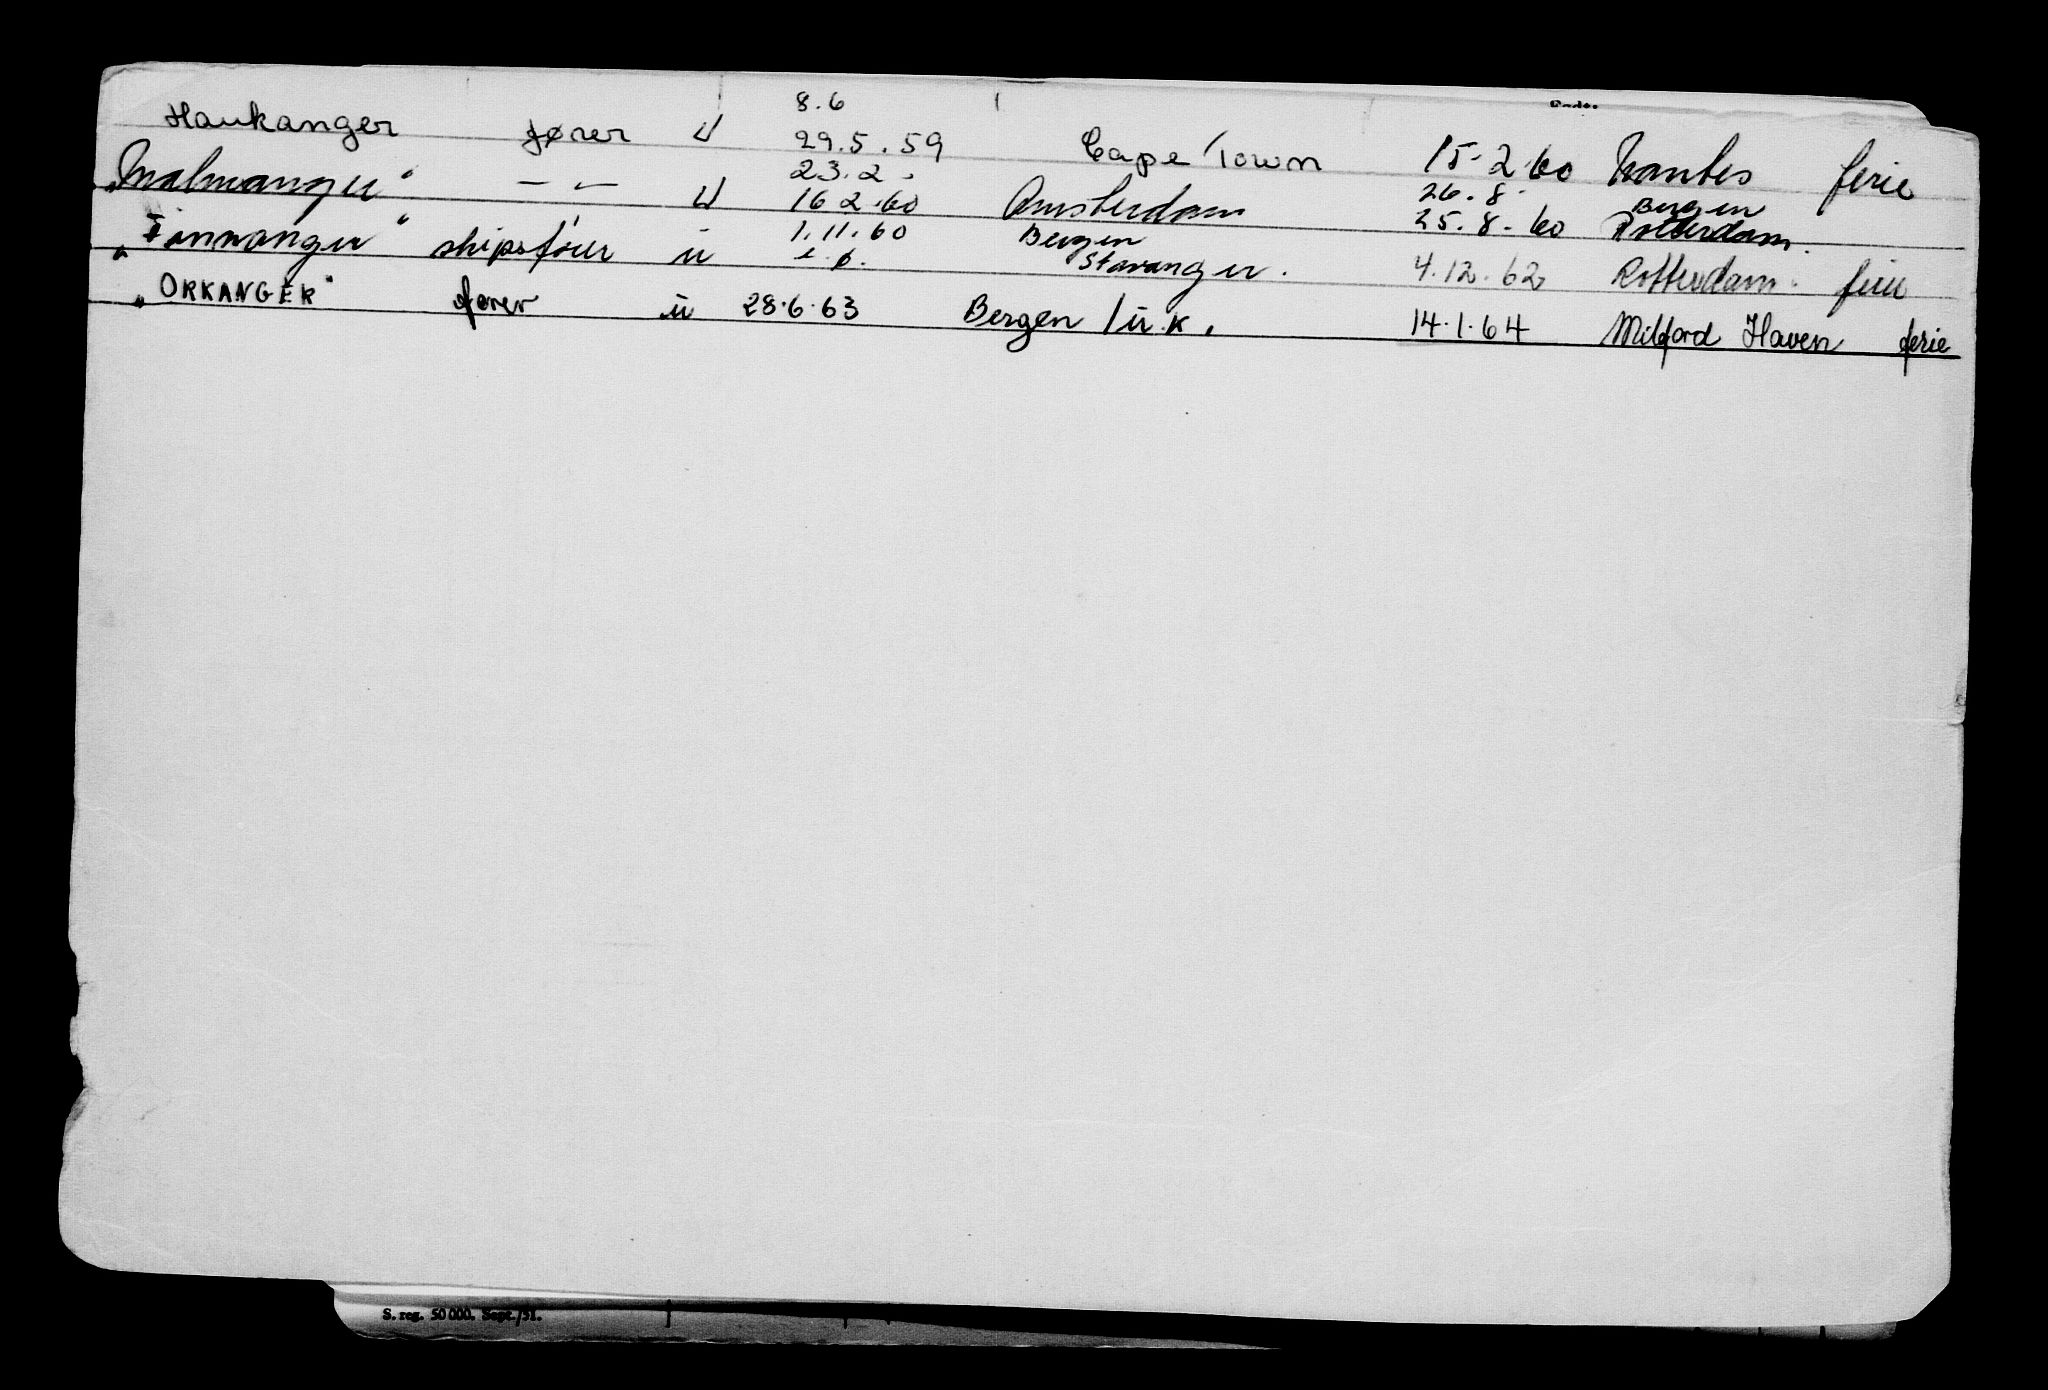 8.6
Haukanger fører u 29.5.59 Cape Town 15.2.60 Nantes ferie
23.2. 26.8. Bergen
"Malmanger" — — u 16 2.60 Amsterdam 25.8.60 Rotterdam.
1.11.60 Bergen
"Finnanger" skipsfører u Stavanger. 4.12.62 Rotterdam. ferie
"ORKANGER" fører u 28.6.63 Bergen /u.k. 14.1.64 Milford Haven ferie
S. reg. 50 000. Sept./51.